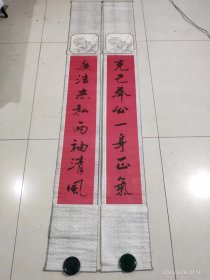 克己奉公一身正氣
廉洁無私两袖清風